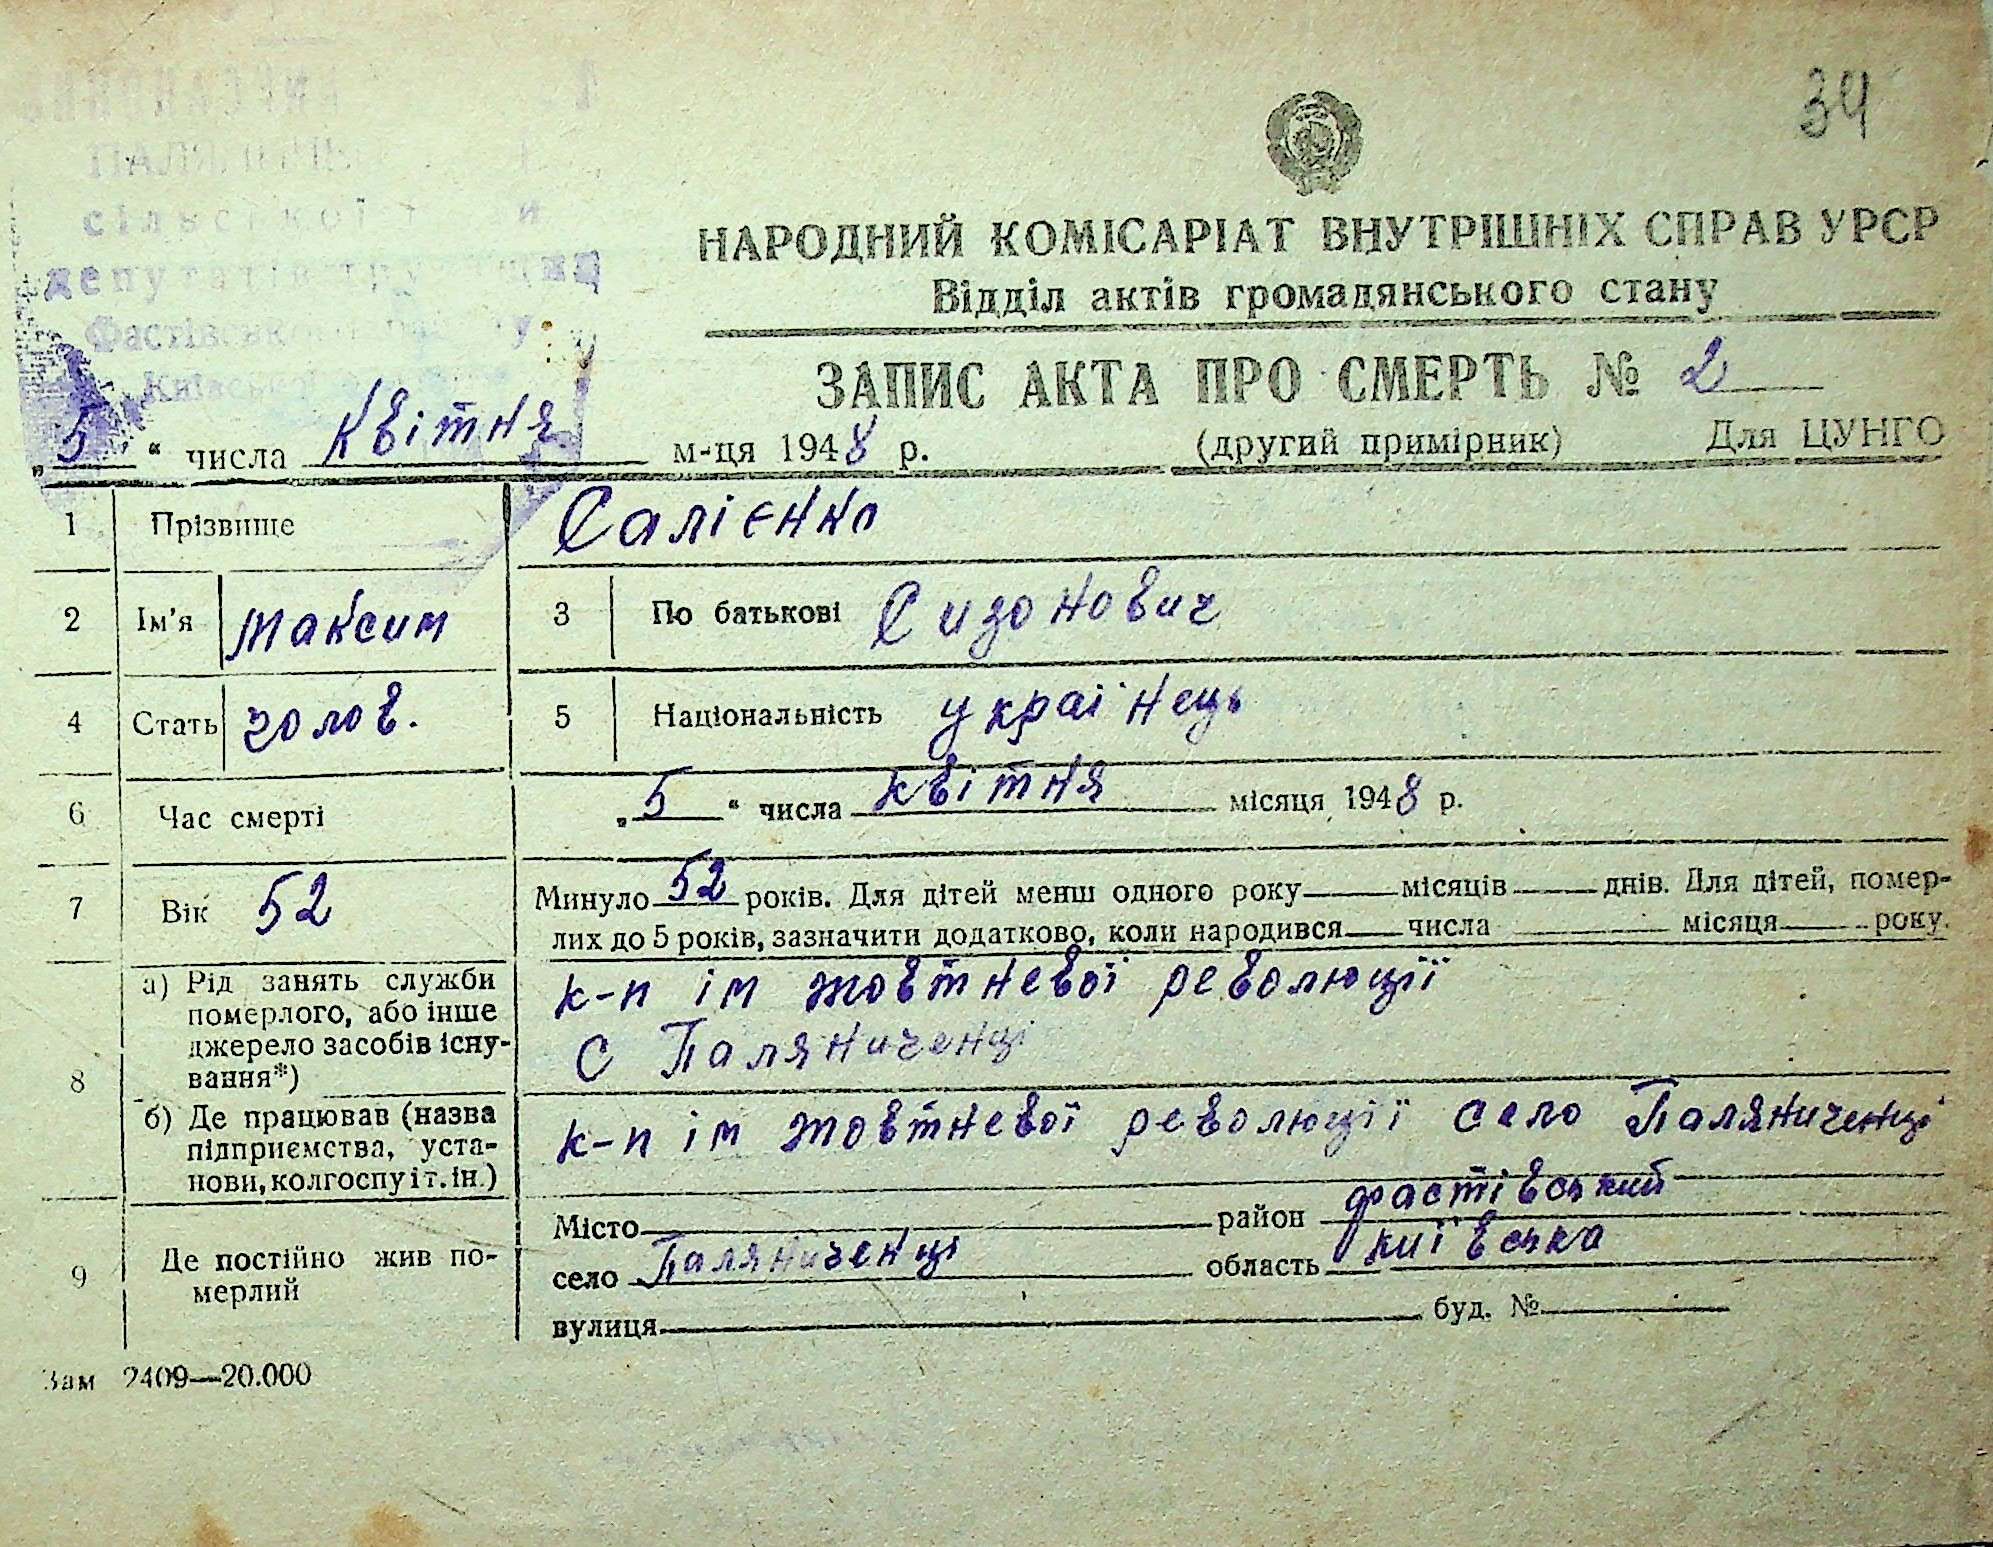 34
сільської
депутатів
Фастівського
Київської
НАРОДНИЙ КОМІСАРІАТ ВНУТРІШНІХ СПРАВ УРСР
Відділ актів громадянського стану
ЗАПИС АКТА ПРО СМЕРТЬ № 2
„ 5 “ числа Квітня м-ця 1948 р. (другий примірник) Для ЦУНГО
1 Прізвище Салієнко
2 Ім’я Максим 3 По батькові Сизонович
4 Стать чолов. 5 Національність українець
6 Час смерті „ 5 “ числа квітня місяця 1948 р.
7 Вік 52 Минуло 52 років. Для дітей менш одного року місяців днів. Для дітей, помер-
лих до 5 років, зазначити додатково, коли народився числа місяця року.
8 а) Рід занять служби
померлого, або інше
джерело засобів існу-
вання*)
к-п ім жовтневої революції
с Паляниченці
б) Де працював (назва
підприємства, уста-
нови, колгоспу і т. ін.)
к-п ім жовтневої революції село Паляниченці
9 Де постійно жив по-
мерлий
Місто район фастівський
село Паляниченці область київська
вулиця буд. №
Зам 2409—20.000